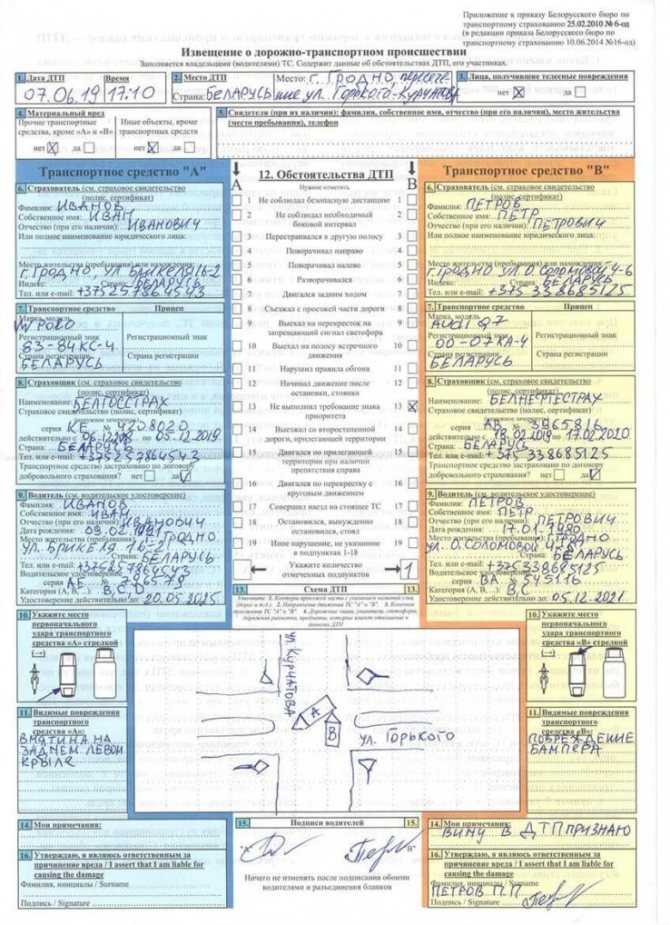 Приложение к приказу Белорусского бюро по
транспортному страхованию 25.02.2010 № 6-од
(в редакции приказа Белорусского бюро по
транспортному страхованию 10.06.2014 №16-од)
Извещение о дорожно-транспортном происшествии
Заполняется владельцами (водителями) ТС. Содержит данные об обстоятельствах ДТП, его участниках.
1. Дата ДТП Время
07.06.19 17:10
2. Место ДТП Место: г. Гродно,
Страна: БЕЛАРУСЬ ул. Горького-
3. Лица, получившие телесные повреждения
нет X да
4. Материальный вред
Прочие транспортные средства, кроме «А» и «В»
нет X да
Иные объекты, кроме транспортных средств
нет X да
5. Свидетели (при их наличии): фамилия, собственное имя, отчество (при его наличии), место жительства
(место пребывания), телефон
Транспортное средство "А"
6. Страхователь (см. страховое свидетельство
(полис, сертификат)
Фамилия: ИВАНОВ
Собственное имя: ИВАН
Отчество (при его наличии): ИВАНОВИЧ
Или полное наименование юридического лица:
Место жительства (пребывания) или нахождения:
г. Гродно, ул.
Индекс: Страна: БЕЛАРУСЬ
Тел. или e-mail:
7. Транспортное средство Прицеп
Марка, модель
VW POLO
Регистрационный знак Регистрационный знак
Страна регистрации Страна регистрации
БЕЛАРУСЬ
8. Страховщик (см. страховое свидетельство
(полис, сертификат)
Наименование: БЕЛГОССТРАХ
Страховое свидетельство (полис, сертификат)
серия КЕ № 4208020
действительно с до 05.12.2019.
Страна: БЕЛАРУСЬ
Тел. или e-mail:
Транспортное средство застраховано по договору
добровольного страхования? нет да V
9. Водитель (см. водительское удостоверение)
Фамилия: ИВАНОВ
Собственное имя: ИВАН
Отчество (при его наличии): ИВАНОВИЧ
Дата рождения:
Место жительства Гродно
Страна: БЕЛАРУСЬ
Тел. или e-mail:
Водительское удостоверение
серия АЕ №
Категория (А, В, ...): B, C, D
Удостоверение действительно до: 20.05.2025
10. Укажите место
первоначального
удара транспортного
средства «А» стрелкой
(→)
11. Видимые повреждения
транспортного
средства «А»:
ВМЯТИНА НА
ЗАДНЕМ ЛЕВОМ
КРЫЛЕ
14. Мои примечания:
16. Утверждаю, я являюсь ответственным за
причинение вреда / I assert that I am liable for
causing the damage
Фамилия, инициалы / Surname
Подпись / Signature
А В
12. Обстоятельства ДТП
Нужное отметить
1 Не соблюдал безопасную дистанцию 1
2 Не соблюдал необходимый боковой интервал 2
3 Перестраивался в другую полосу 3
4 Поворачивал направо 4
5 Поворачивал налево 5
6 Разворачивался 6
7 Двигался задним ходом 7
8 Съезжал с проезжей части дороги 8
9 Выехал на перекресток на запрещающий сигнал светофора 9
10 Выехал на полосу встречного движения 10
11 Нарушил правила обгона 11
12 Начинал движение после остановки, стоянки 12
13 Не выполнил требование знака приоритета 13 X
14 Выезжал со второстепенной дороги, прилегающей территории 14
15 Двигался по прилегающей территории при наличии препятствия справа 15
16 Двигался по перекрестку с круговым движением 16
17 Совершил наезд на стоящее ТС 17
18 Остановился, вынужденно остановил, стоял 18
19 Иное нарушение, не указанное в подпунктах 1-18 19
Укажите количество отмеченных подпунктов 1
13. Схема ДТП 13.
ул. КУРЧАТОВА
А
В
ул. ГОРЬКОГО
15. Подписи водителей 15.
Ничего не изменять после подписания обоими
водителями и разъединения бланков
Транспортное средство "В"
6. Страхователь (см. страховое свидетельство
(полис, сертификат)
Фамилия: ПЕТРОВ
Собственное имя: ПЕТР
Отчество (при его наличии): ПЕТРОВИЧ
Или полное наименование юридического лица:
Место жительства (пребывания) или нахождения:
г. Гродно ул. О.Соломовой
Индекс: Страна: БЕЛАРУСЬ
Тел. или e-mail: +375338685125
7. Транспортное средство Прицеп
Марка, модель
AUDI Q7
Регистрационный знак Регистрационный знак
Страна регистрации Страна регистрации
БЕЛАРУСЬ
8. Страховщик (см. страховое свидетельство
(полис, сертификат)
Наименование: БЕЛНЕФТЕСТРАХ
Страховое свидетельство (полис, сертификат)
серия № 3965816
действительно с 18.02.2019 до 17.02.2020
Страна: БЕЛАРУСЬ
Тел. или e-mail: +375338685125
Транспортное средство застраховано по договору
добровольного страхования? нет да V
9. Водитель (см. водительское удостоверение)
Фамилия: ПЕТРОВ
Собственное имя: ПЕТР
Отчество (при его наличии): ПЕТРОВИЧ
Дата рождения: 17.01.1980
Место жительства Гродно
ул. О.Соломовой Страна: БЕЛАРУСЬ
Тел. или e-mail: +375338685125
Водительское удостоверение
серия ВА № 545116
Категория (А, В, ...): B, C
Удостоверение действительно до: 05.12.2021
10. Укажите место
первоначального
удара транспортного
средства «В» стрелкой
(→)
11. Видимые повреждения
транспортного
средства «В»:
ПОВРЕЖДЕНИЕ
БАМПЕРА
14. Мои примечания:
ВИНУ В ДТП ПРИЗНАЮ
16. Утверждаю, я являюсь ответственным за
причинение вреда / I assert that I am liable for
causing the damage
Фамилия, инициалы / Surname
ПЕТРОВ П.П
Подпись / Signature